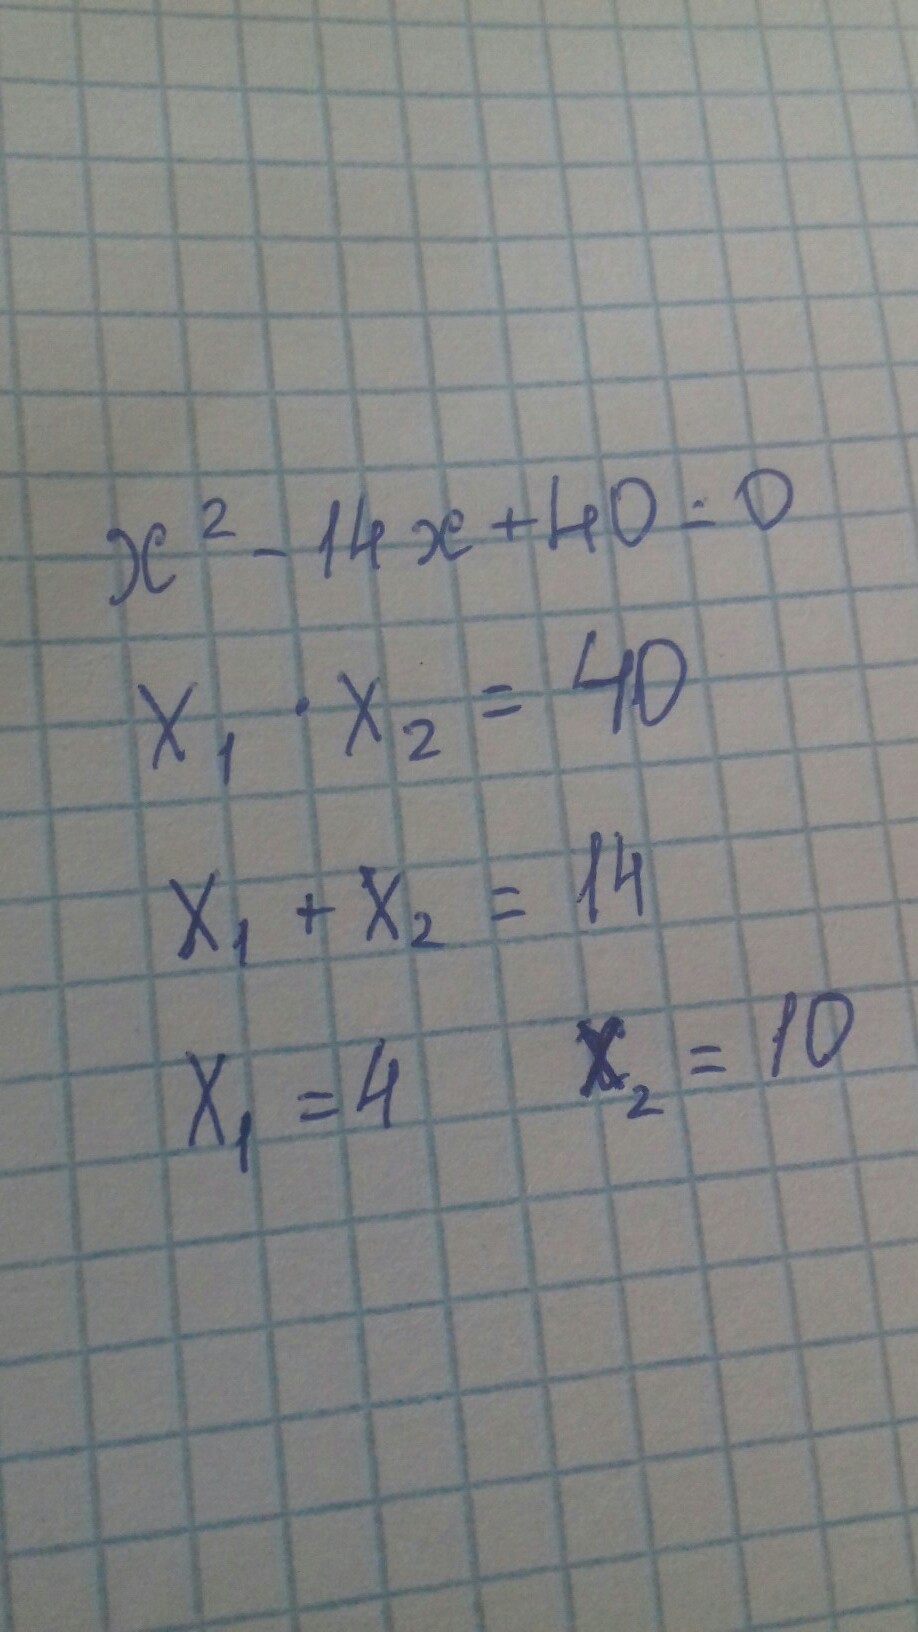 x² - 14x + 40 = 0
x₁ · x₂ = 40
x₁ + x₂ = 14
x₁ = 4 x₂ = 10